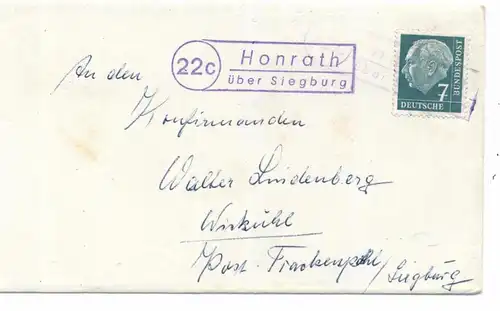 22c
Honrath
über Siegburg
7
DEUTSCHE
BUNDESPOST
An den
Konfirmanden
Walter Lindenberg
Post
/Siegburg